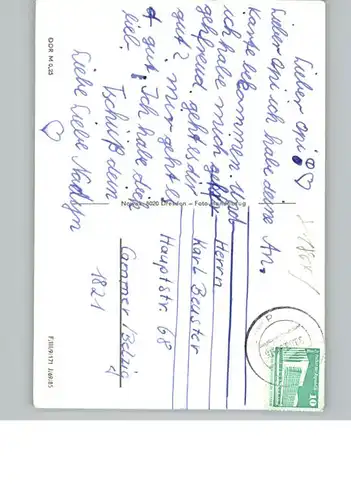 Lieber Opi! ♡
Lieber Opi ich habe deine
Karte bekommen. Und
ich habe mich
gefreud. geht es dir
gut? mir geht es
gut. Ich habe dich
lieb.
Tschüß dein
Liebe Liebe Nadyn
♡
Herrn
Karl Beuster
Hauptstr. 68
Cammer / Belzig
1821
DDR M 0,25
8020 Dresden
F/III/9/171 J/69/85
10